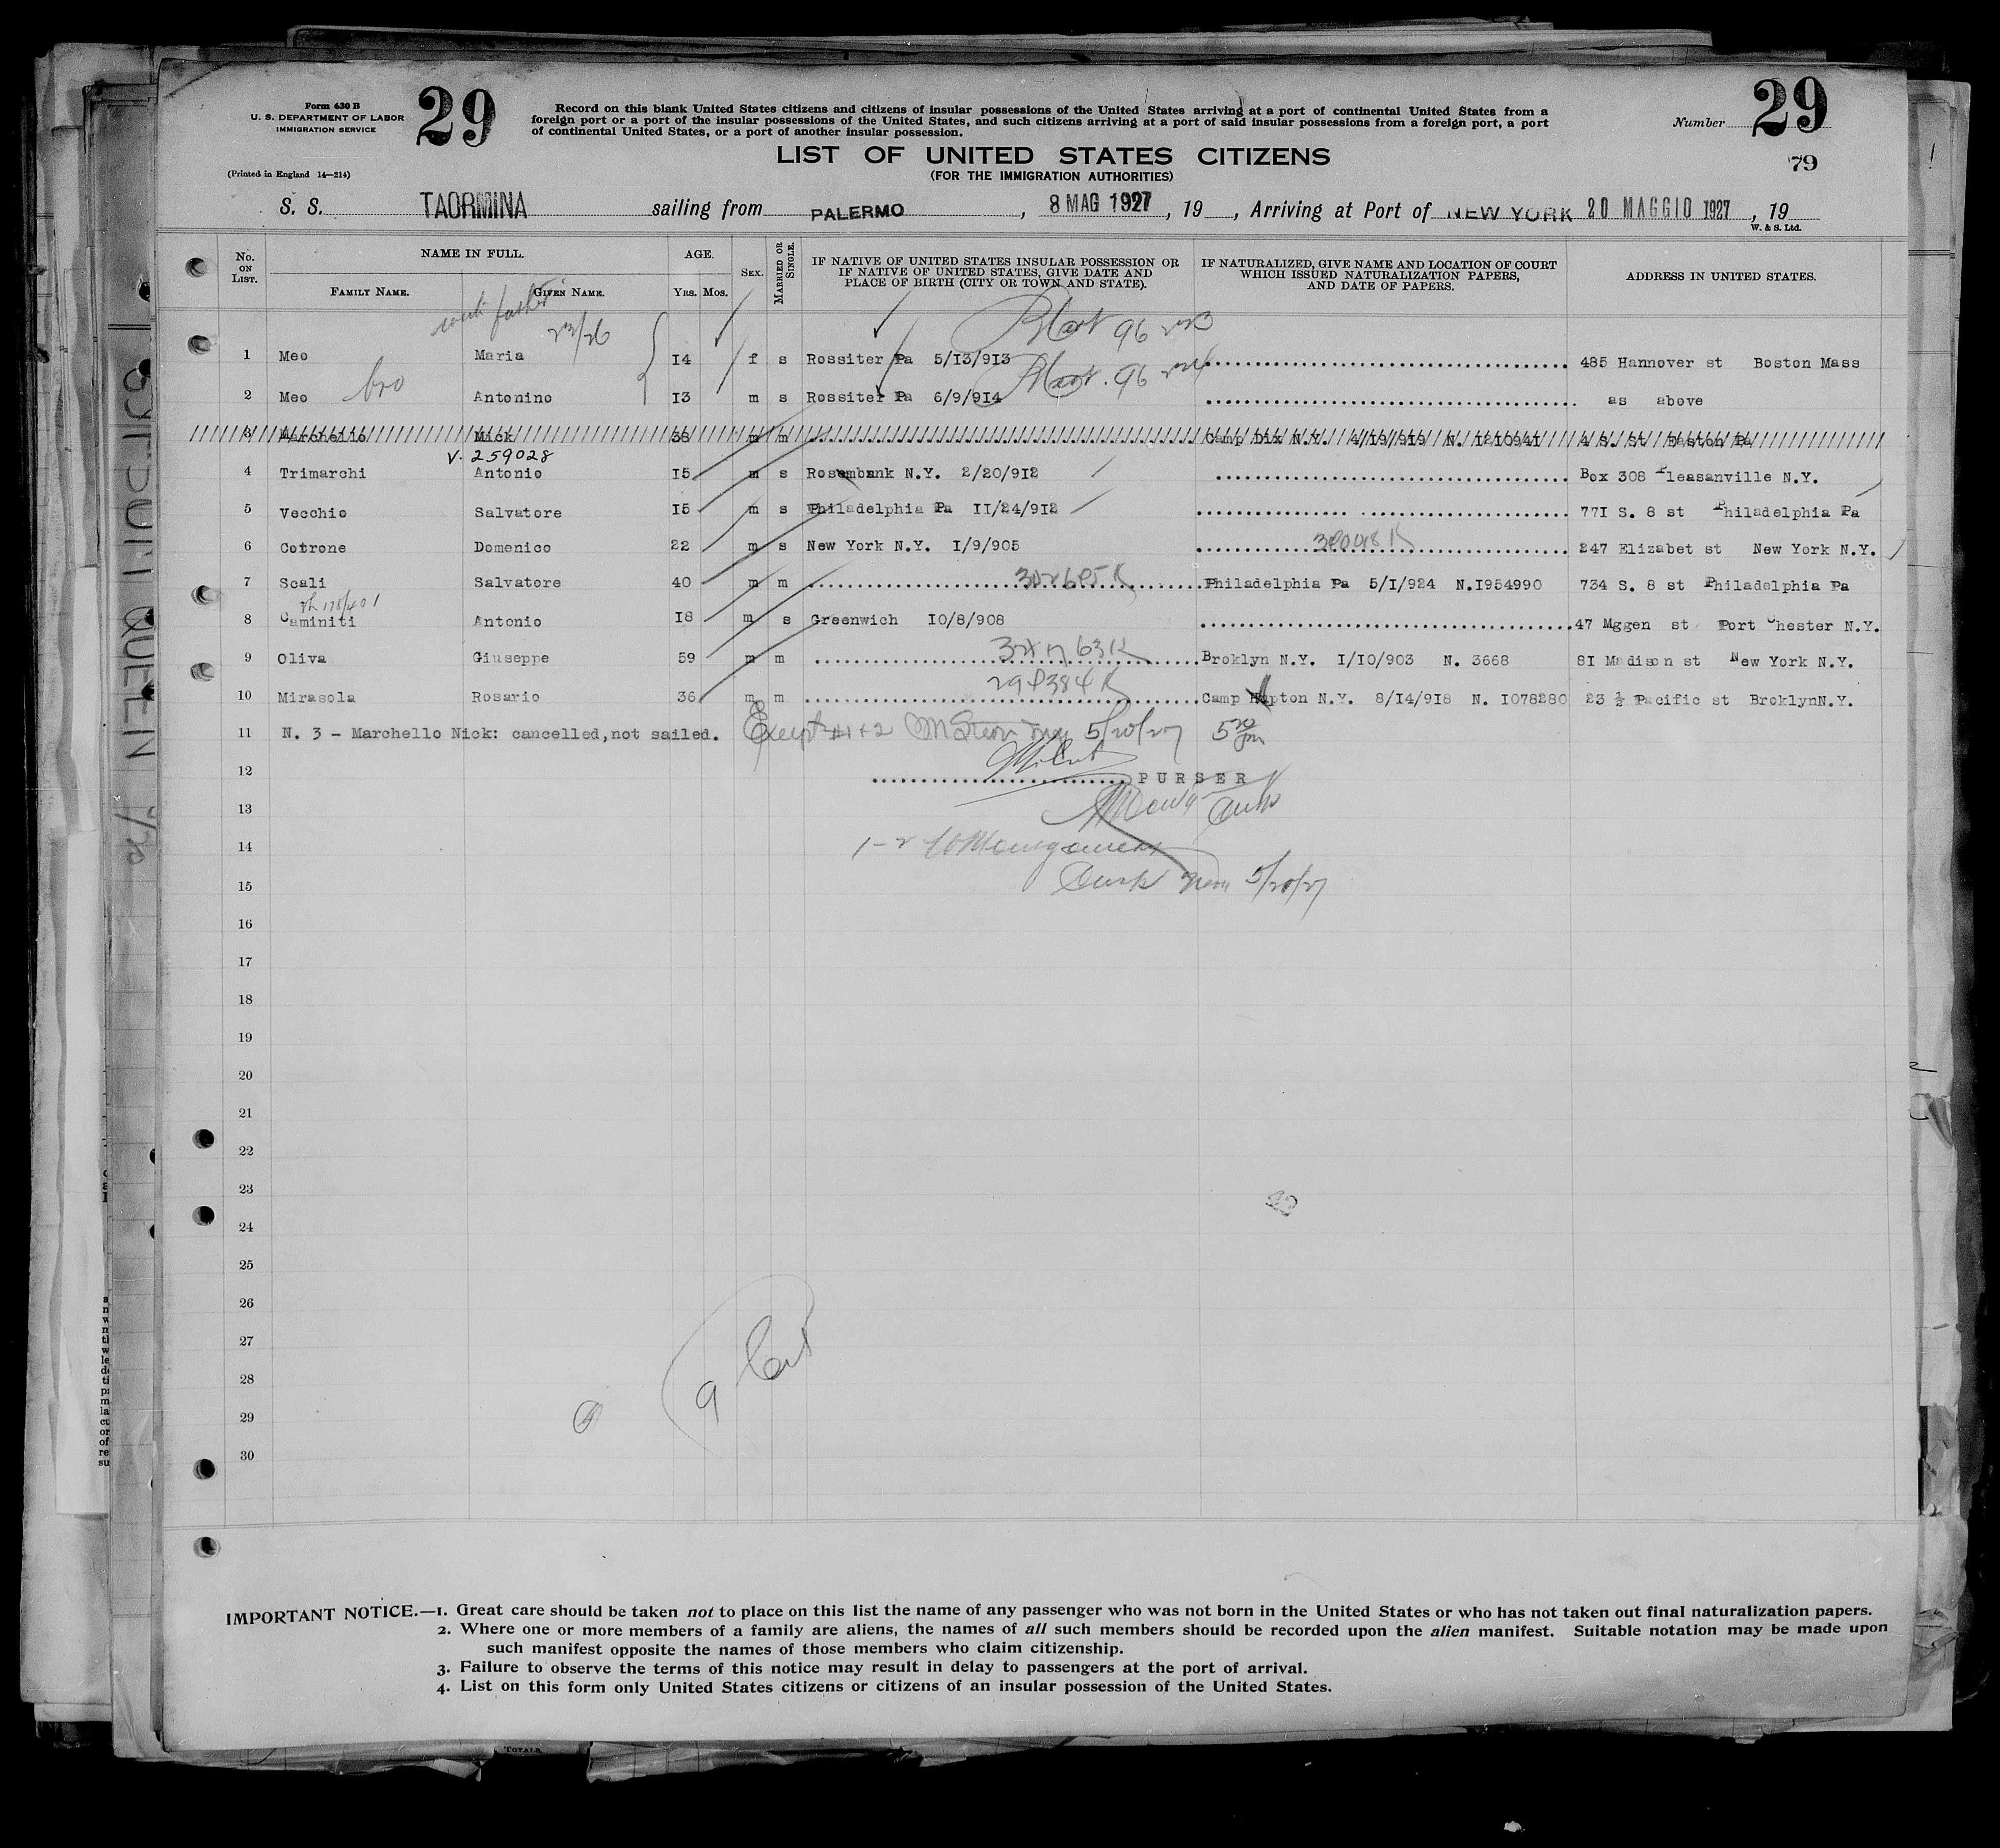 Form 630 B
U. S. DEPARTMENT OF LABOR
IMMIGRATION SERVICE
29
Record on this blank United States citizens and citizens of insular possessions of the United States arriving at a port of continental United States from a
foreign port or a port of the insular possessions of the United States, and such citizens arriving at a port of said insular possessions from a foreign port, a port
of continental United States, or a port of another insular possession.
Number 29
LIST OF UNITED STATES CITIZENS
(FOR THE IMMIGRATION AUTHORITIES)
79
(Printed in England 14—214)
S. S. TAORMINA sailing from PALERMO, 8 MAG 1927, 19 , Arriving at Port of NEW YORK 20 MAGGIO 1927, 19
W. & S. Ltd.
No. ON LIST. NAME IN FULL. FAMILY NAME. GIVEN NAME. AGE. YRS. MOS. SEX. MARRIED OR SINGLE. IF NATIVE OF UNITED STATES INSULAR POSSESSION OR IF NATIVE OF UNITED STATES, GIVE DATE AND PLACE OF BIRTH (CITY OR TOWN AND STATE). IF NATURALIZED, GIVE NAME AND LOCATION OF COURT WHICH ISSUED NATURALIZATION PAPERS, AND DATE OF PAPERS. ADDRESS IN UNITED STATES.
with father
23/26
1 Meo Maria 14 f s Rossiter Pa 5/13/913 485 Hannover st Boston Mass
bro
2 Meo Antonino 13 m s Rossiter Pa 6/9/914 as above
3 Marchello Nick 38 m m Camp Dix N.Y. 4/19/919 N. 1210941 4 S. St Easton Pa
V. 259028
4 Trimarchi Antonio 15 m s Rosembank N.Y. 2/20/912 Box 308 Pleasanville N.Y.
5 Vecchio Salvatore 15 m s Philadelphia Pa 11/24/912 771 S. 8 st Philadelphia Pa
6 Cotrone Domenico 22 m s New York N.Y. 1/9/905 247 Elizabet st New York N.Y.
7 Scali Salvatore 40 m m Philadelphia Pa 5/1/924 N.1954990 734 S. 8 st Philadelphia Pa
8 Caminiti Antonio 18 m s Greenwich 10/8/908 47 Mggen st Port Chester N.Y.
9 Oliva Giuseppe 59 m m Broklyn N.Y. 1/10/903 N. 3668 81 Madison st New York N.Y.
10 Mirasola Rosario 36 m m Camp Upton N.Y. 8/14/918 N. 1078280 23 ½ Pacific st BroklynN.Y.
11 N. 3 - Marchello Nick: cancelled,not sailed. Except #1+2 5/20/27
12 PURSER
13
14 1-2
15 5/20/27
16
17
18
19
20
21
22
23
24
25
26
27
28
29
30
9
IMPORTANT NOTICE.—1. Great care should be taken not to place on this list the name of any passenger who was not born in the United States or who has not taken out final naturalization papers.
2. Where one or more members of a family are aliens, the names of all such members should be recorded upon the alien manifest. Suitable notation may be made upon
such manifest opposite the names of those members who claim citizenship.
3. Failure to observe the terms of this notice may result in delay to passengers at the port of arrival.
4. List on this form only United States citizens or citizens of an insular possession of the United States.
TOTALS